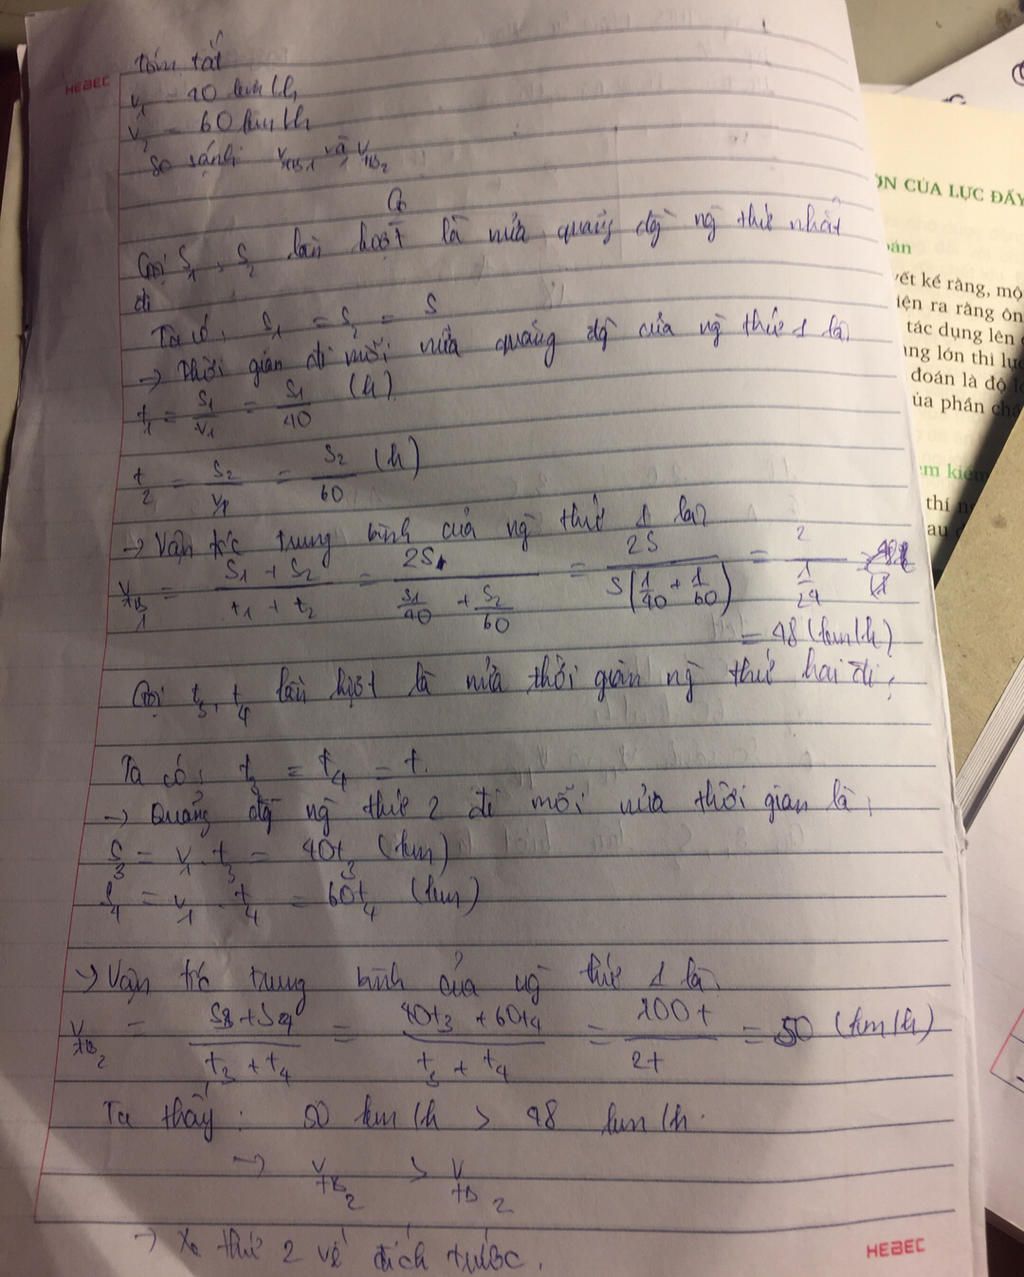 HEBEC
Tóm tắt
v1 = 40 km/h
v2 = 60 km/h
So sánh: vTB1 và vTB2
Gọi S1, S2 lần lượt là nửa quãng đg ng thứ nhất
đi
Ta có, S1 = S2 = S
→ Thời gian đi mỗi nửa quãng đg của ng thứ 1 là
t1 = S1/v1 = S1/40 (h)
t2 = S2/v2 = S2/60 (h)
→ Vận tốc trung bình của ng thứ 1 là
vTB1 = (S1 + S2)/(t1 + t2) = 2S/(S1/40 + S2/60) = 2S/(S(1/40 + 1/60)) = 2/(1/24)
= 48 (km/h)
Gọi t3, t4 lần lượt là nửa thời gian ng thứ hai đi;
Ta có, t3 = t4 = t.
→ Quãng đg ng thứ 2 đi mỗi nửa thời gian là,
S3 = v1.t3 = 40t3 (km)
S4 = v1.t4 = 60t4 (km)
→ Vận tốc trung bình của ng thứ 1 là,
vTB2 = (S3 + S4)/(t3 + t4) = (40t3 + 60t4)/(t3 + t4) = 100t/2t = 50 (km/h)
Ta thấy: 50 km/h > 48 km/h.
→ vTB2 > vTB2
→ Xe thứ 2 về đích trước.
HEBEC
ỜN CỦA LỰC ĐẨY
oán
yết kể rằng, mộ
iện ra rằng ôn
tác dụng lên
ang lớn thì lực
đoán là độ l
ủa phần ch
ểm kiểm
thí n
au